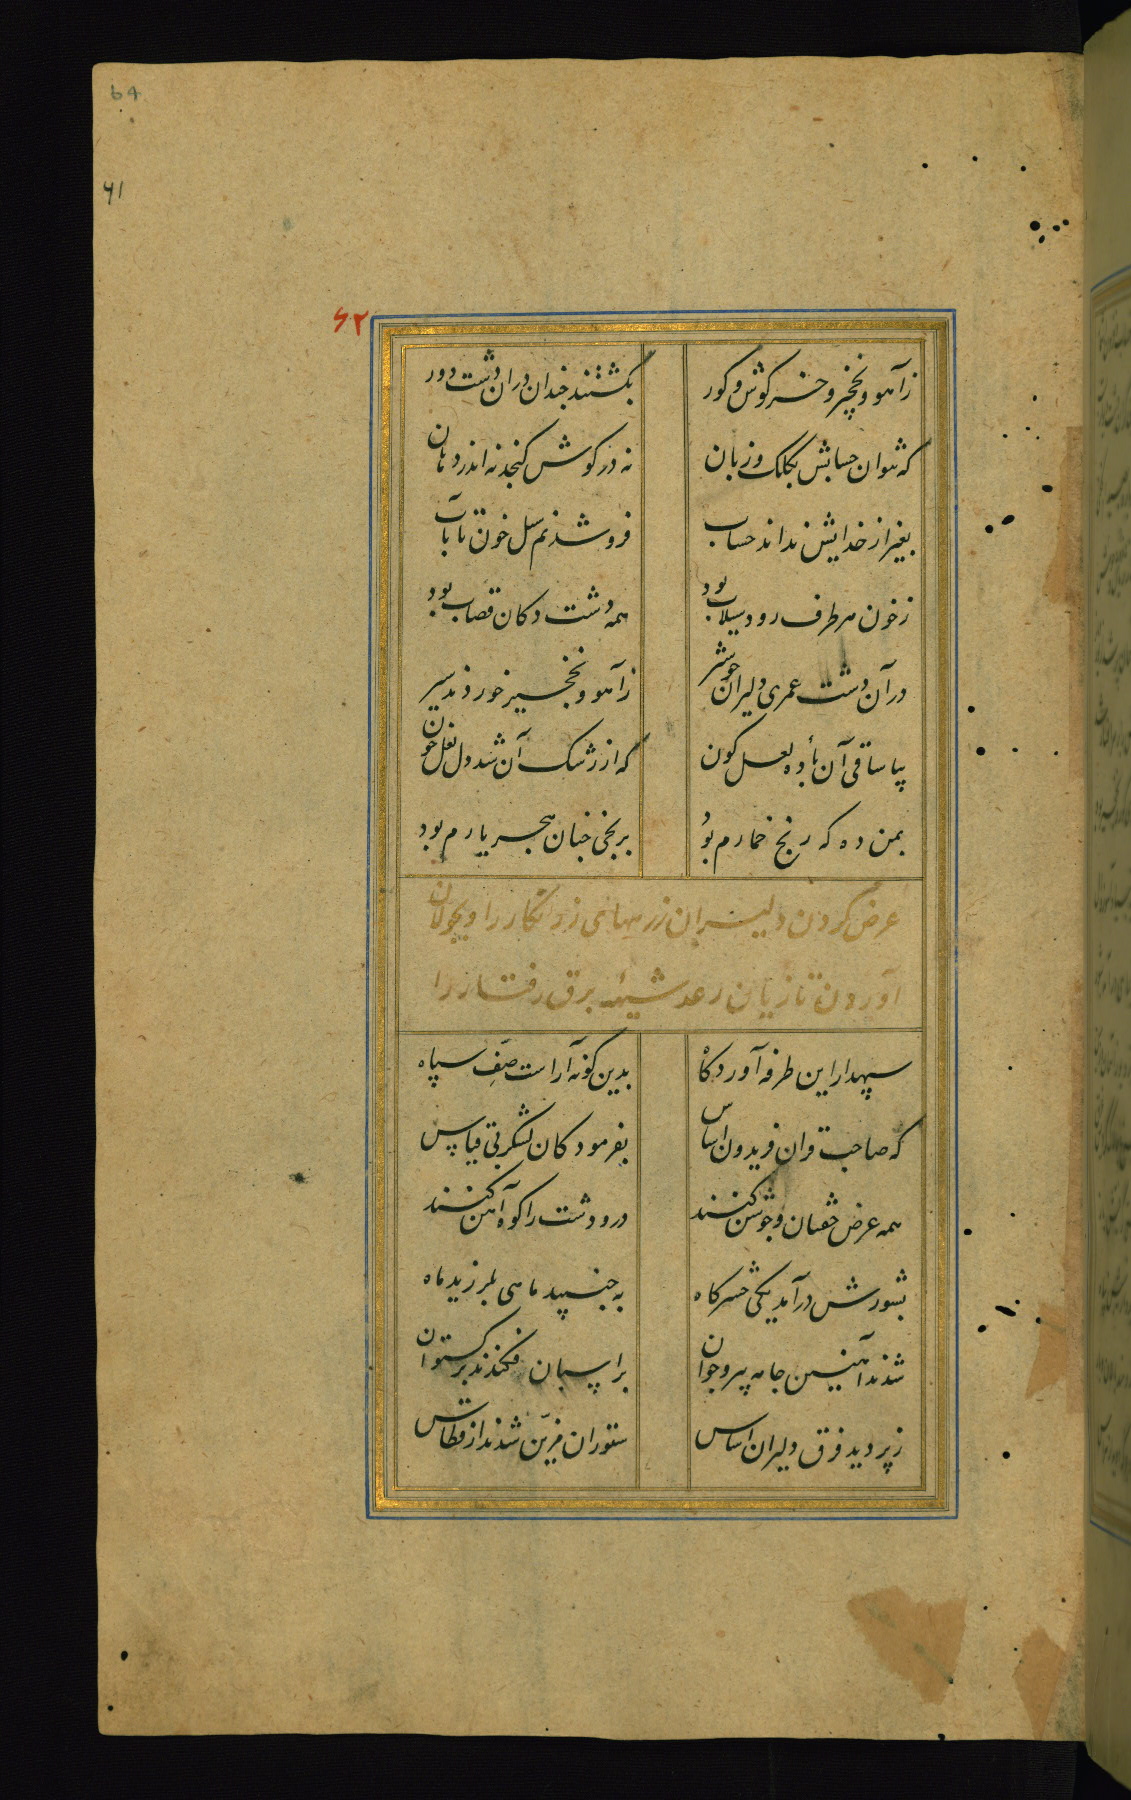 64
۶۱
۶۲
ز آهو و نخچیر و خرگوش و گور بکشتند چندان در آن دشت دور
که نتوان حسابش بکلک و زبان نه در گوش گنجد نه اندر دهان
بغیر از خدایش نداند حساب فرو شد نم سیل خون تا بآب
ز خون هر طرف رود سیلاب بود همه دشت دکان قصاب بود
در آن دشت عمری دلیران چو شیر ز آهو و نخچیر خوردند سیر
بیا ساقی آن بادهٔ لعل گون که از رشک آن شد دل لعل خون
بمن ده که رنج خمارم بود برنجی چنان هجر یارم بود
عرض کردن دلیران زرمهای زر انکار را و بجولان
آوردن تازیان رعد شیهه برق رفتار را
سپهدار این طرفه آوردگاه بدین گونه آراست صف سپاه
که صاحبقران فریدون اساس بفرمود کان لشکر بی قیاس
همه عرض خفتان و جوشن کنند در و دشت را کوه آهن کنند
بشورش در آمد یکی حشرگاه بجنبید ماهی بلرزید ماه
شدند آهنین جامه پیر و جوان بر اسپان فکندند برگستوان
ز پر دید فرق دلیران اساس ستوران مزین شدند از قطاس